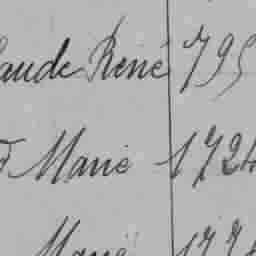 Claude René 795
Marie 1724
Marie 177